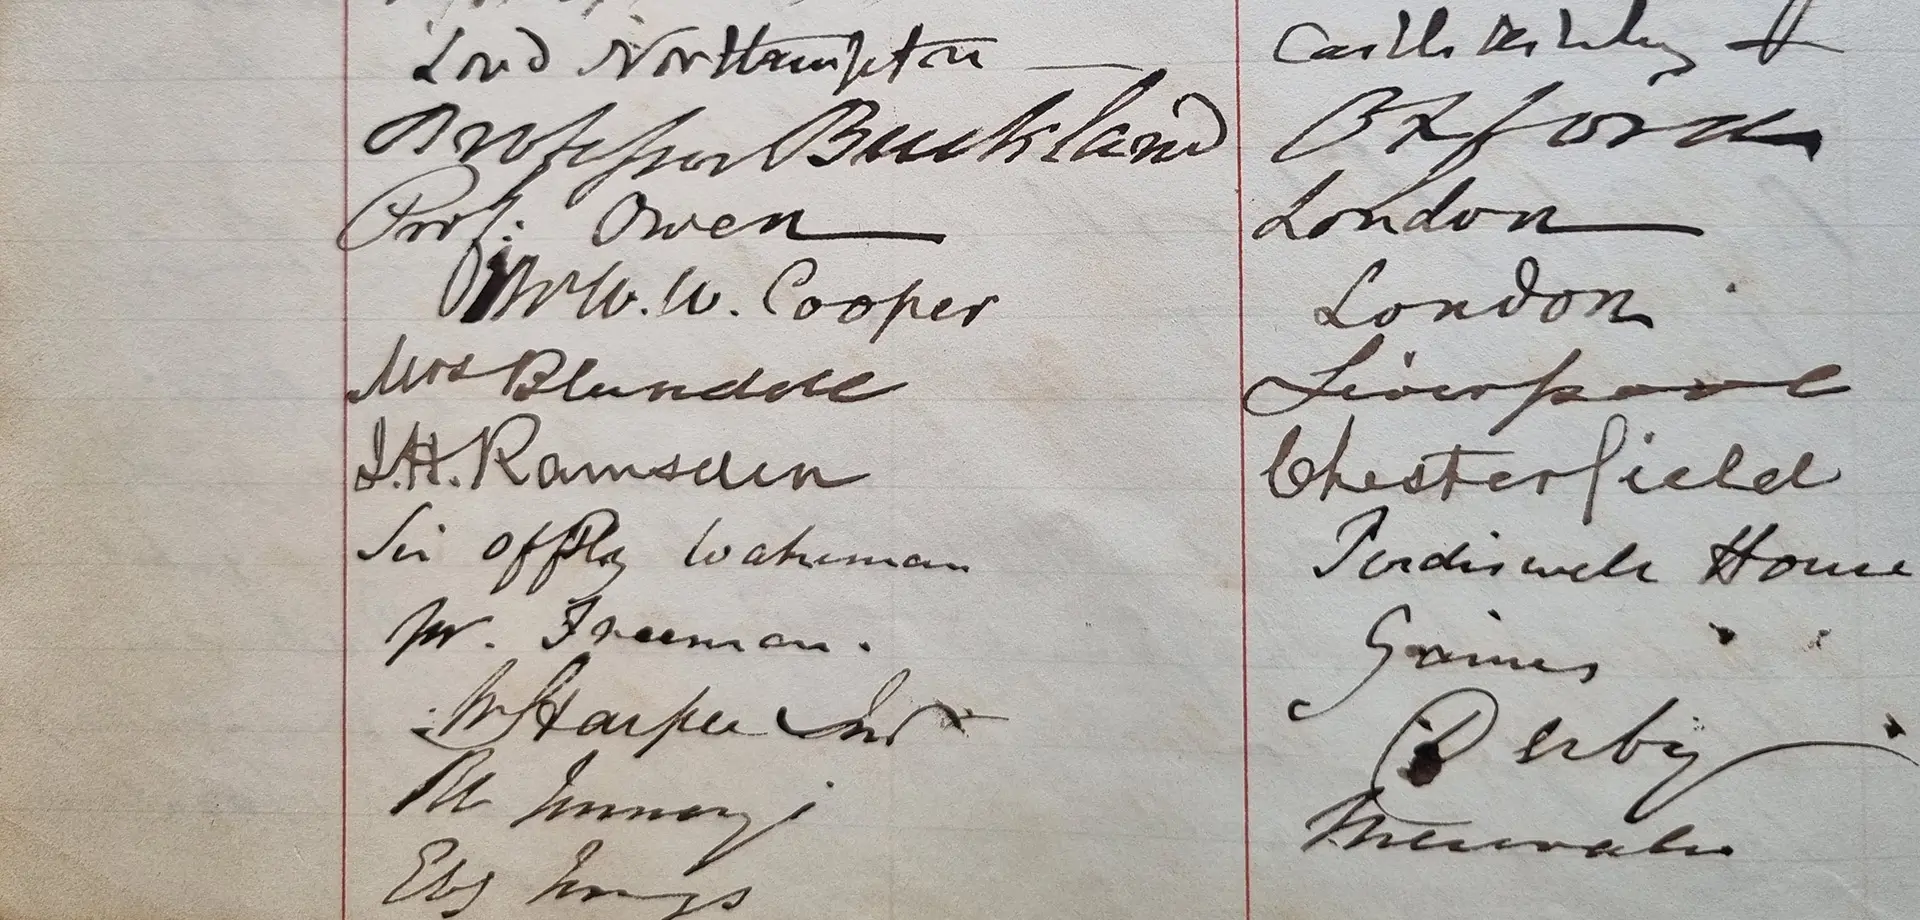 Lord Northampton — Castle Ashby
Professor Buckland Oxford
Prof. Owen London
Mr W. W. Cooper London
Mrs Blundell Liverpool
J.H. Ramsden Chesterfield
Sir Offley Wakeman Perdiswell House
Mr. Freeman. Gaines
W Harper Derby